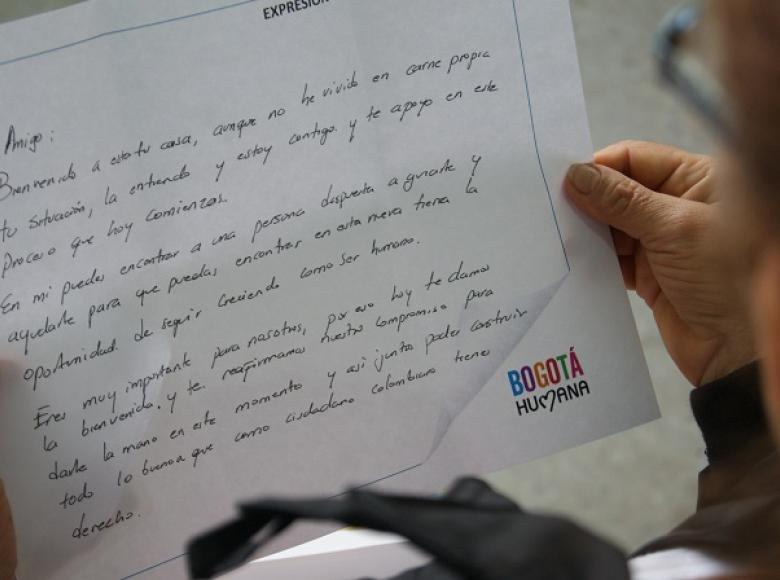 EXPRESIÓN
Amigo:
Bienvenido a esta tu casa, aunque no he vivido en carne propia
tu situación, la entiendo y estoy contigo y te apoyo en este
proceso que hoy comienzas.
En mi puedes encontrar a una persona dispuesta a guiarte y
ayudarte para que puedas encontrar en esta nueva tierra la
oportunidad de seguir creciendo como ser humano.
Eres muy importante para nosotros, por eso hoy te damos
la bienvenida. y te reafirmamos nuestro compromiso para
darte la mano en este momento y asi juntos poder construir
todo lo bueno a que como ciudadano colombiano tienes
derecho.
BOGOTÁ
HUMANA